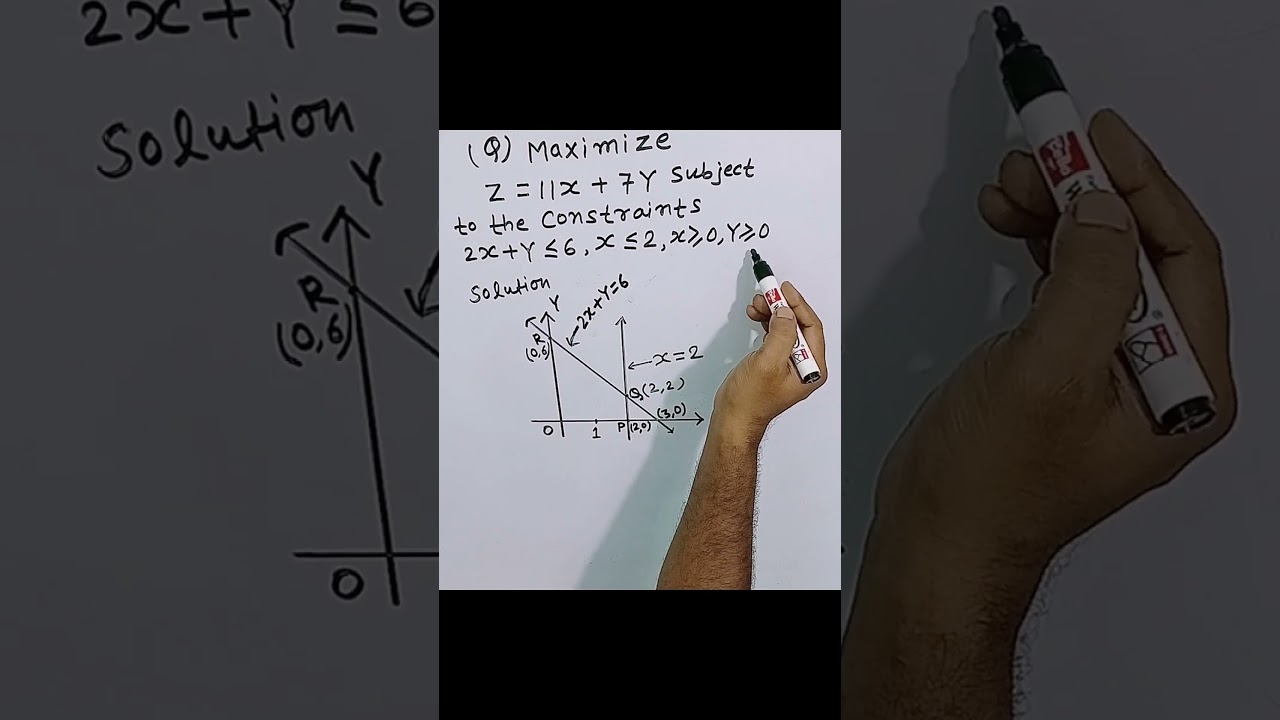 (Q) Maximize
Z = 11x + 7Y Subject
to the Constraints
2x+Y ≤ 6, x ≤ 2, x ≥ 0, Y ≥ 0
Solution
Y
2x+Y=6
R
(0,6)
x = 2
Q(2,2)
(3,0)
O
1
P
(2,0)
2x+Y ≤ 6
Solution
Y
R
(0,6)
O